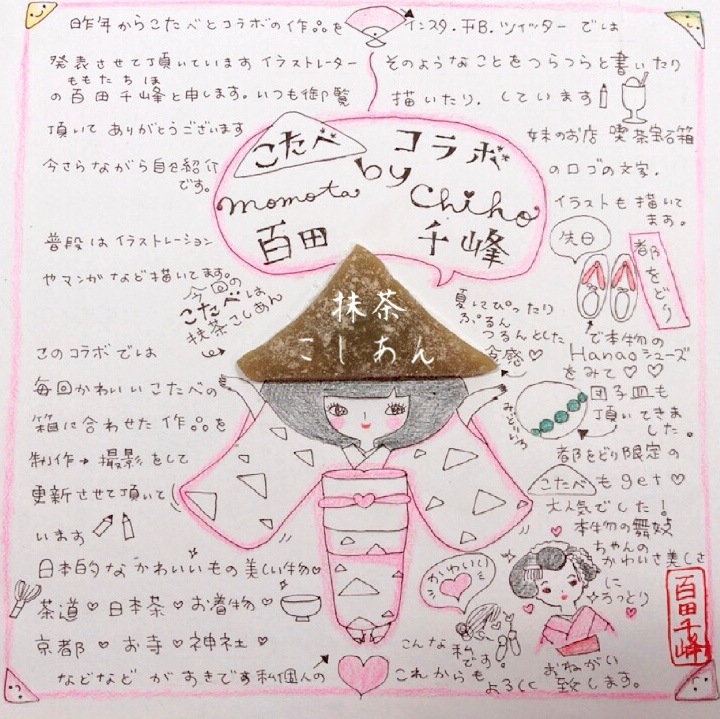 昨年からこたべとコラボの作品を
発表させて頂いていますイラストレーター
ももた ちほ
の百田千峰と申します。いつも御覧
頂いてありがとうございます
今さらながら自己紹介
です。
普段はイラストレーション
やマンガなど描いてます。
このコラボでは
毎回かわいいこたべの
箱に合わせた作品を
制作→撮影をして
更新させて頂いて
います
日本的なかわいいもの美しい物♡
茶道♡日本茶♡お着物♡
京都♡お寺♡神社♡
などなどがすきです私個人の
インスタ.FB.ツイッターでは
そのようなことをつらつらと書いたり
描いたり.しています
妹のお店 喫茶宝石箱
のロゴの文字.
イラストも描いて
ます。
こたべ コラボ
by
momota Chiho
百田 千峰
今回の
こたべは
抹茶こしあん
抹茶
こしあん
夏にぴったり
ぷるん
つるんとした
食感♡
みどいろ
先日
都をどり
で本物の
Hanaoシューズ
をみて♡♡
団子皿も
頂いてきま
した。
都をどり限定の
こたべもget♡
大人気でした!
本物の舞妓
ちゃんの
かわいさ美しさ
に
うっとり
かわいい
こんな私
です。
これからも
よろしく
おねがい
致します。
百田千峰